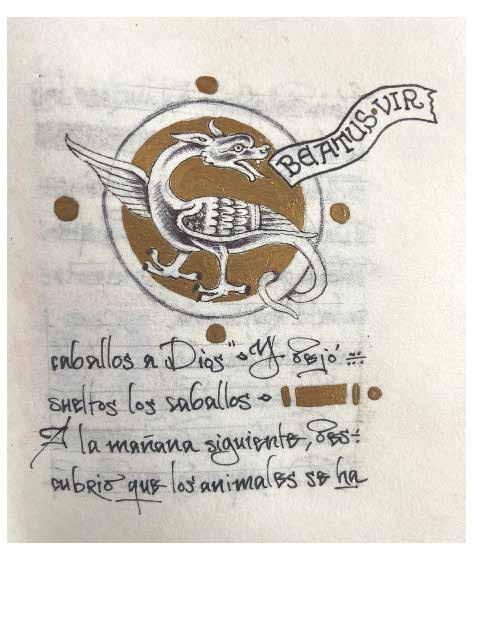 BEATUS·VIR
caballos a Dios". Y dejó
sueltos los caballos.
A la mañana siguiente, des-
cubrió que los animales se ha